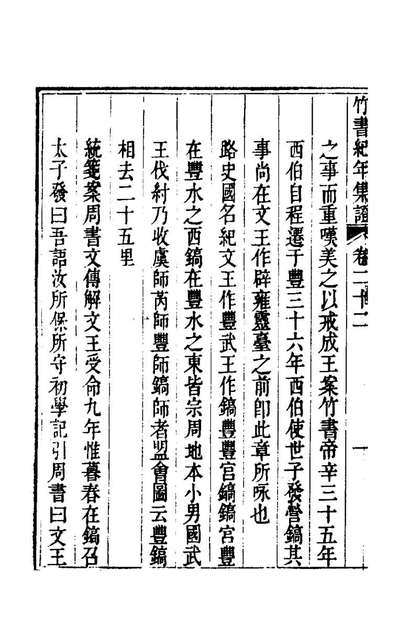 竹書紀年集證 卷二十二 一
之事而重嘆美之以戒成王案竹書帝辛三十五年
西伯自程遷于豐三十六年西伯使世子發營鎬其
事尚在文王作辟雍靈臺之前卽此章所咏也
路史國名紀文王作豐武王作鎬豐豐宮鎬鎬宮豐
在豐水之西鎬在豐水之東皆宗周地本小男國武
王伐紂乃收虞師芮師豐師鎬師者盟會圖云豐鎬
相去二十五里
統箋案周書文傳解文王受命九年惟暮春在鎬召
太子發曰吾語汝所保所守初學記引周書曰文王